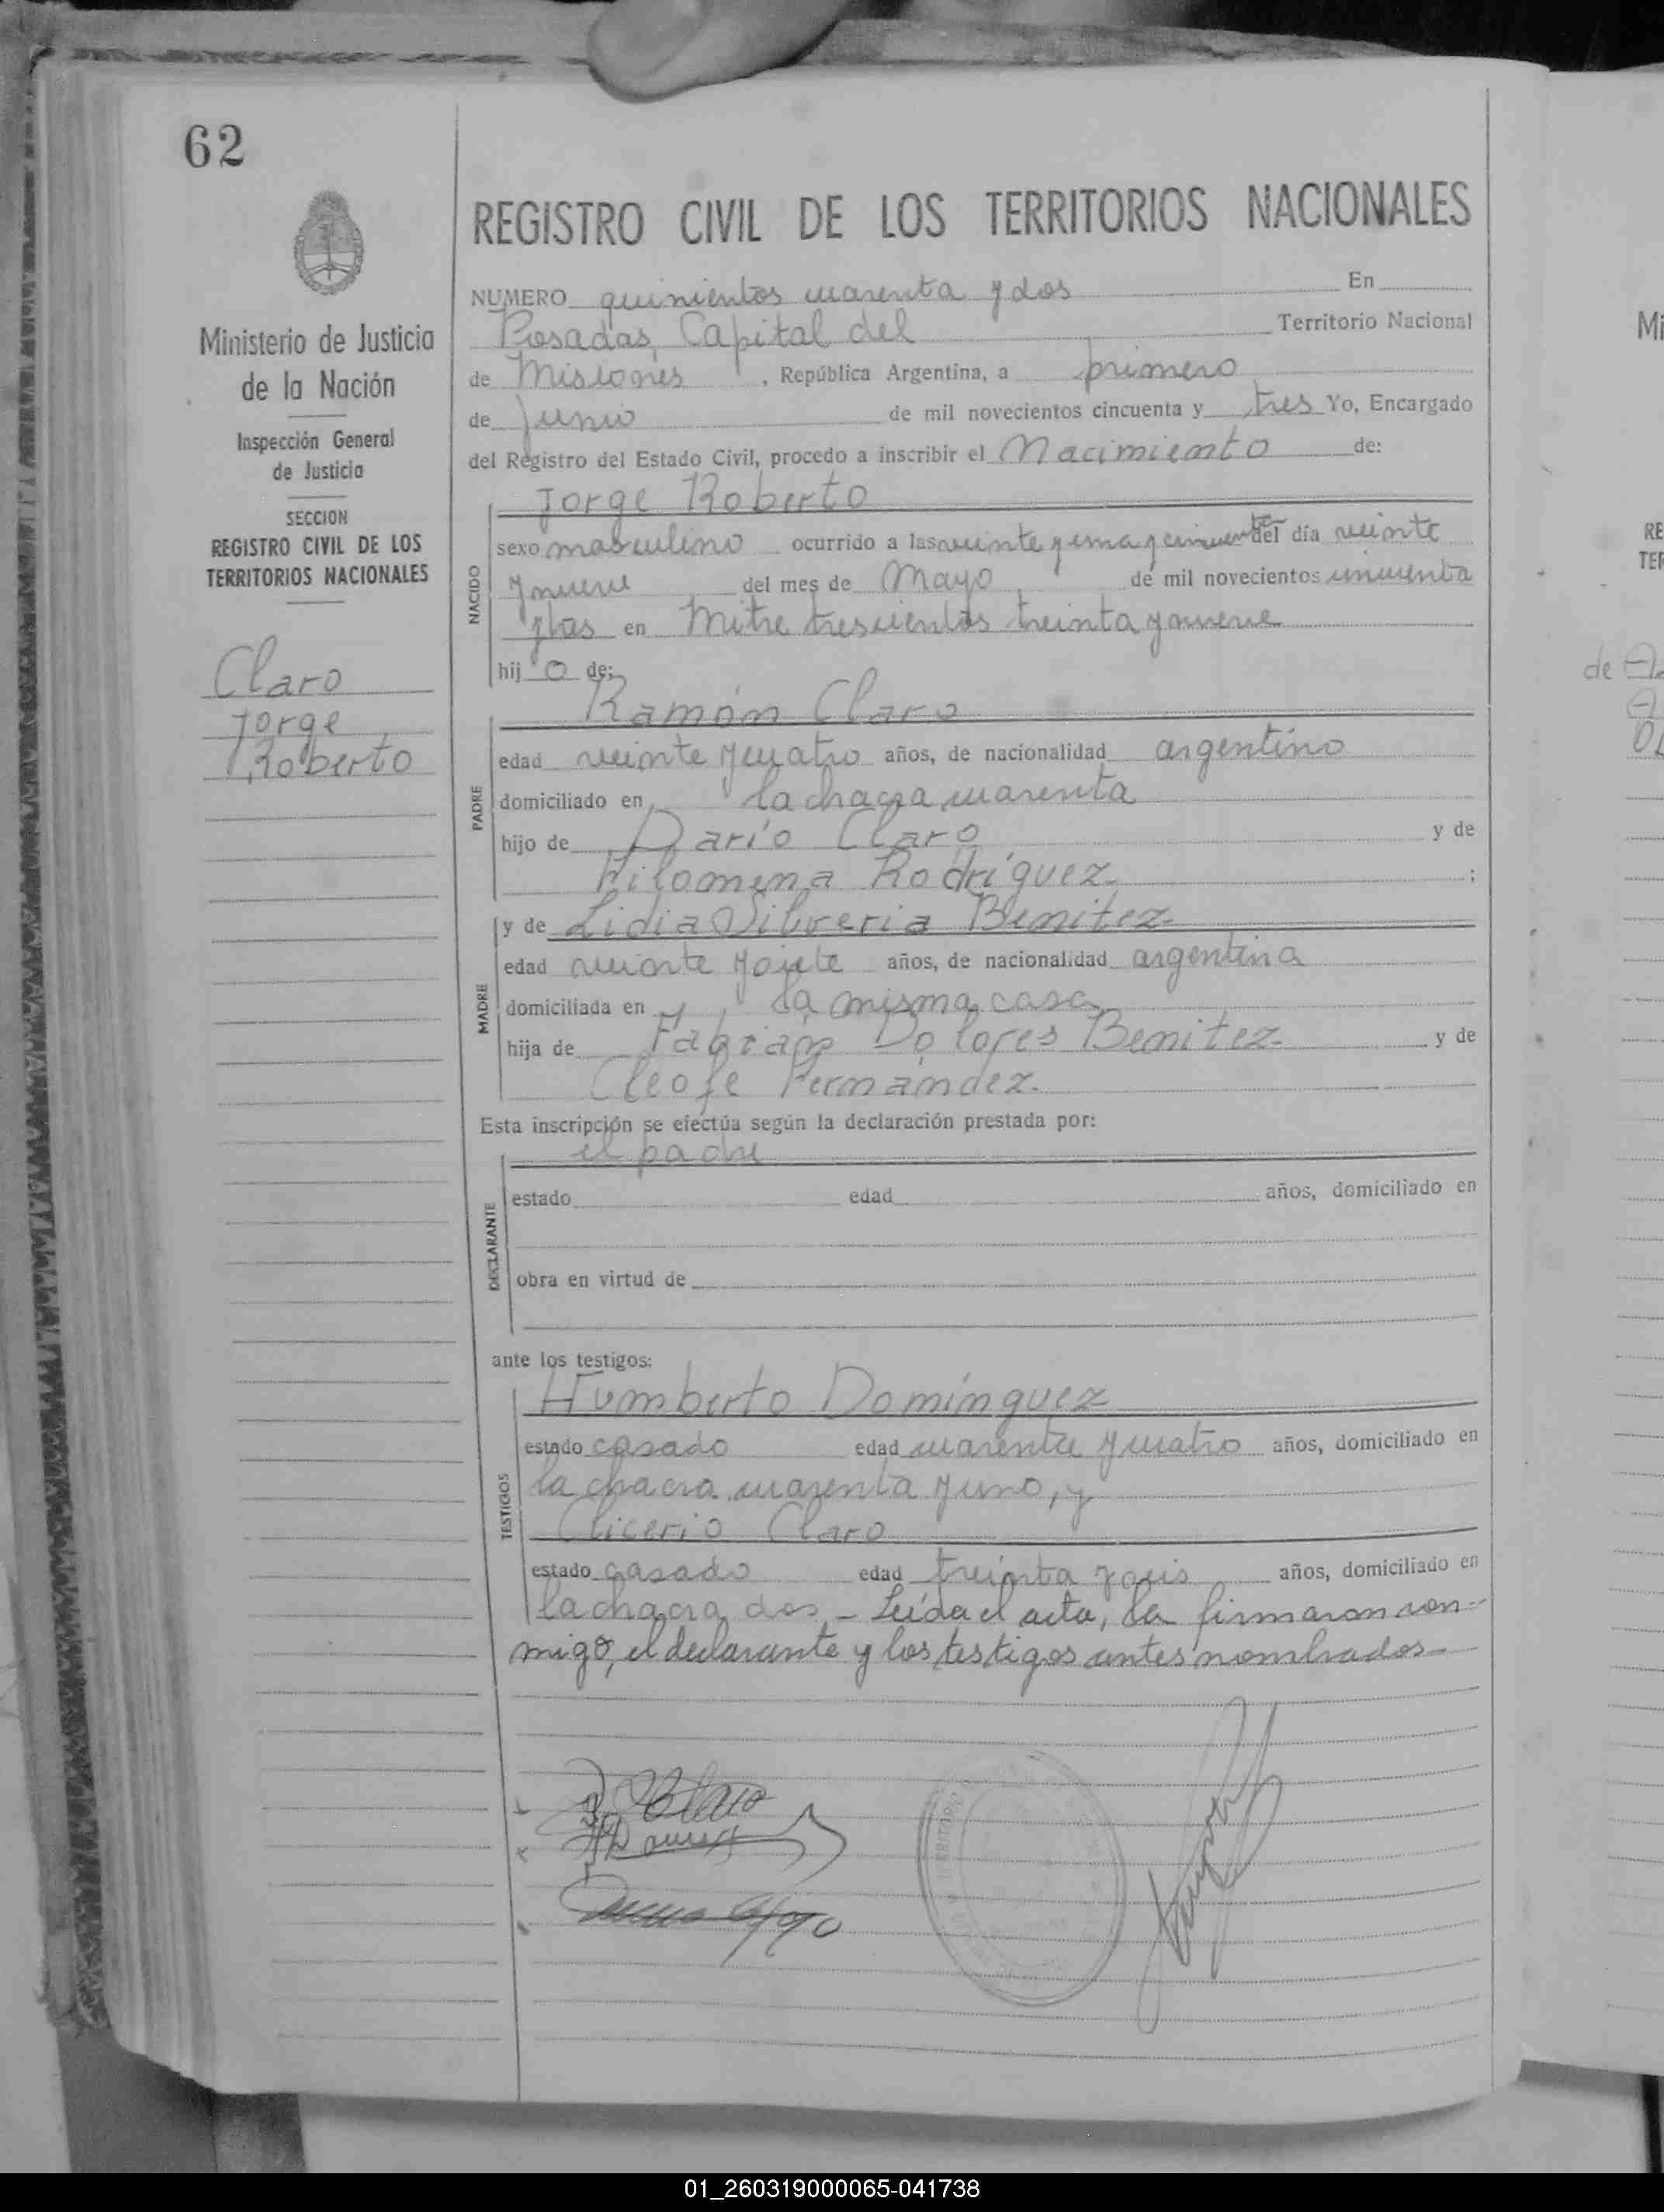 62
REGISTRO CIVIL DE LOS TERRITORIOS NACIONALES
Ministerio de Justicia
de la Nación
Inspección General
de Justicia
SECCION
REGISTRO CIVIL DE LOS
TERRITORIOS NACIONALES
Claro
Jorge
Roberto
NUMERO quinientos cuarenta y dos En
Posadas, Capital del Territorio Nacional
de Misiones, República Argentina, a primero
de Junio de mil novecientos cincuenta y tres Yo, Encargado
del Registro del Estado Civil, procedo a inscribir el Nacimiento de:
Jorge Roberto
NACIDO
sexo masculino ocurrido a las veinte y una y cincuenta del día veinte
y nueve del mes de Mayo de mil novecientos cincuenta
y tres en Mitre trescientos treinta y nueve
hijo de:
Ramón Claro
PADRE
edad veinte y cuatro años, de nacionalidad argentino
domiciliado en la chacra cuarenta
hijo de Darío Claro y de
Filomena Rodríguez ;
y de Lidia Silveria Benitez
MADRE
edad veinte y siete años, de nacionalidad argentina
domiciliada en la misma casa
hija de Fabián Dolores Benitez y de
Cleofe Fernández.
Esta inscripción se efectúa según la declaración prestada por:
el padre
DECLARANTE
estado edad años, domiciliado en
obra en virtud de
ante los testigos:
Humberto Domínguez
TESTIGOS
estado casado edad cuarenta y cuatro años, domiciliado en
la chacra cuarenta y uno, y
Clicerio Claro
estado casado edad treinta y seis años, domiciliado en
la chacra dos - Leída el acta, la firmaron con-
migo, el declarante y los testigos antes nombrados-
Claro
TERRITORIO
Mi
RE
TER
de
01_260319000065-041738